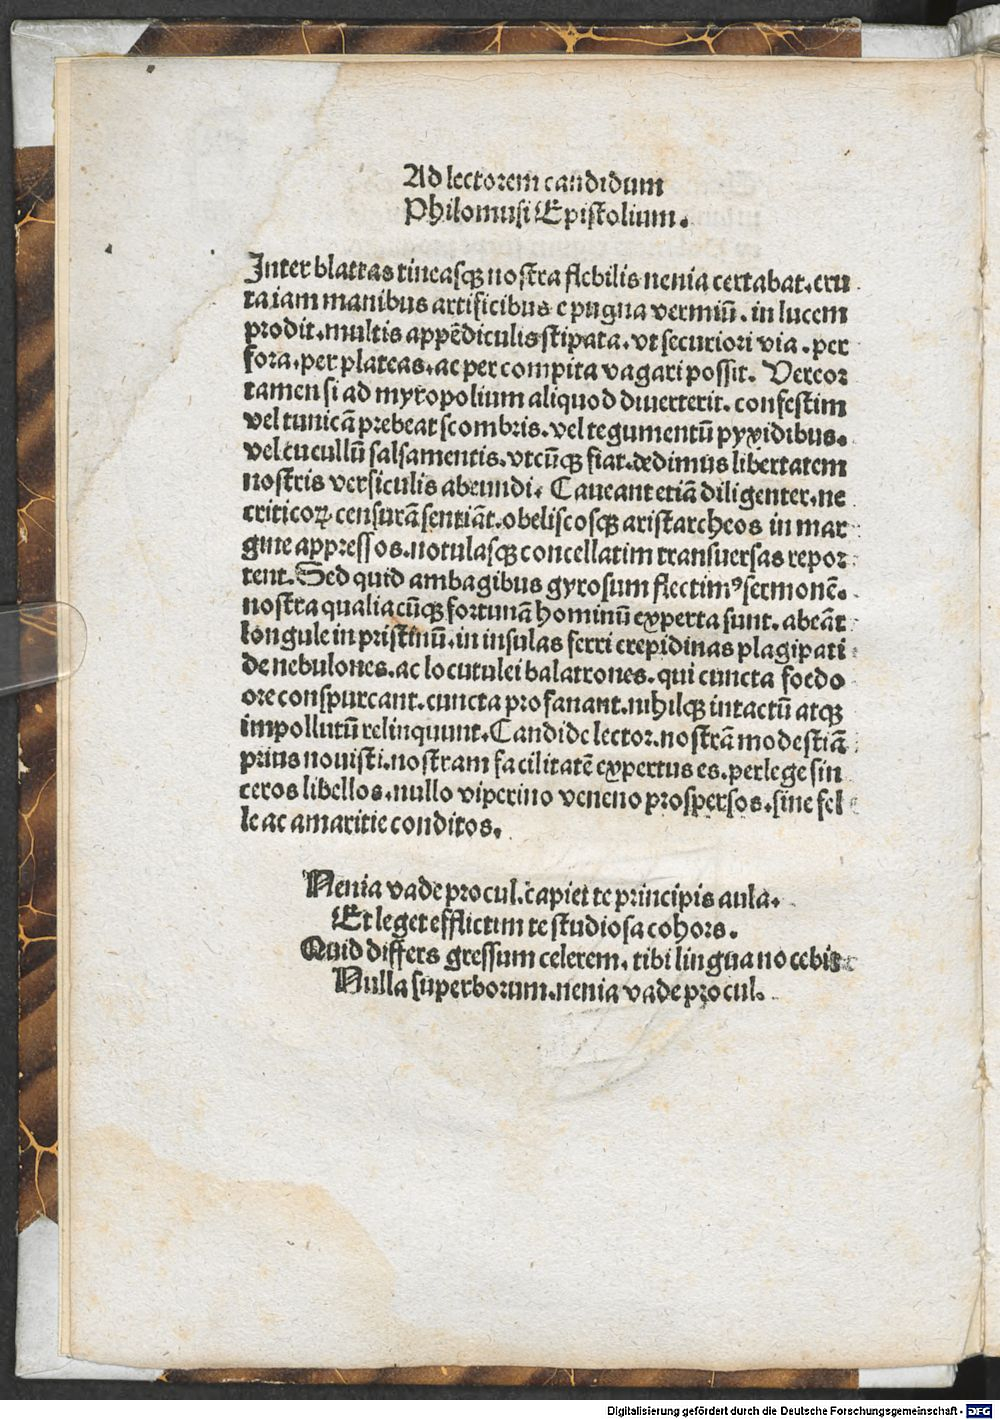 Ad lectorem candidum
Philomusi Epistolium.
Inter blattas tineasqꝫ nostra flebilis nenia certabat. eru
ta iam manibus artificibus e pugna vermiū. in lucem
prodit. multis appēdiculis stipata. vt securiori via. per
fora. per plateas. ac per compita vagari possit. Vereor
tamen si ad myropolium aliquod diuerterit. confestim
vel tunicā prebeat scombris. vel tegumentū pyxidibus.
vel cucullū salsamentis. vtcūqꝫ fiat. dedimus libertatem
nostris versiculis abeundi. Caueant etiā diligenter. ne
criticoꝝ censurā sentiāt. obeliscosqꝫ aristarcheos in mar
gine appressos. notulasqꝫ concellatim transuersas repor
tent. Sed quid ambagibus gyrosum flectimꝰ sermonē.
nostra qualiacūqꝫ fortunā hominū experta sunt. abeāt
longule in pristinū. in insulas ferri crepidinas plagipati
de nebulones. ac locutulei balatrones. qui cuncta foedo
ore conspurcant. cuncta profanant. nihilqꝫ intactū atqꝫ
impollutū relinquunt. Candide lector. nostrā modestiā
prius nouisti. nostram facilitatē expertus es. perlege sin
ceros libellos. nullo viperino veneno prospersos. sine fel
le ac amaritie conditos.
Nenia vade procul. capiet te principis aula.
Et leget efflictim te studiosa cohors.
Quid differs gressum celerem. tibi lingua nocebit
Nulla superborum. nenia vade procul.
Digitalisierung gefördert durch die Deutsche Forschungsgemeinschaft - DFG